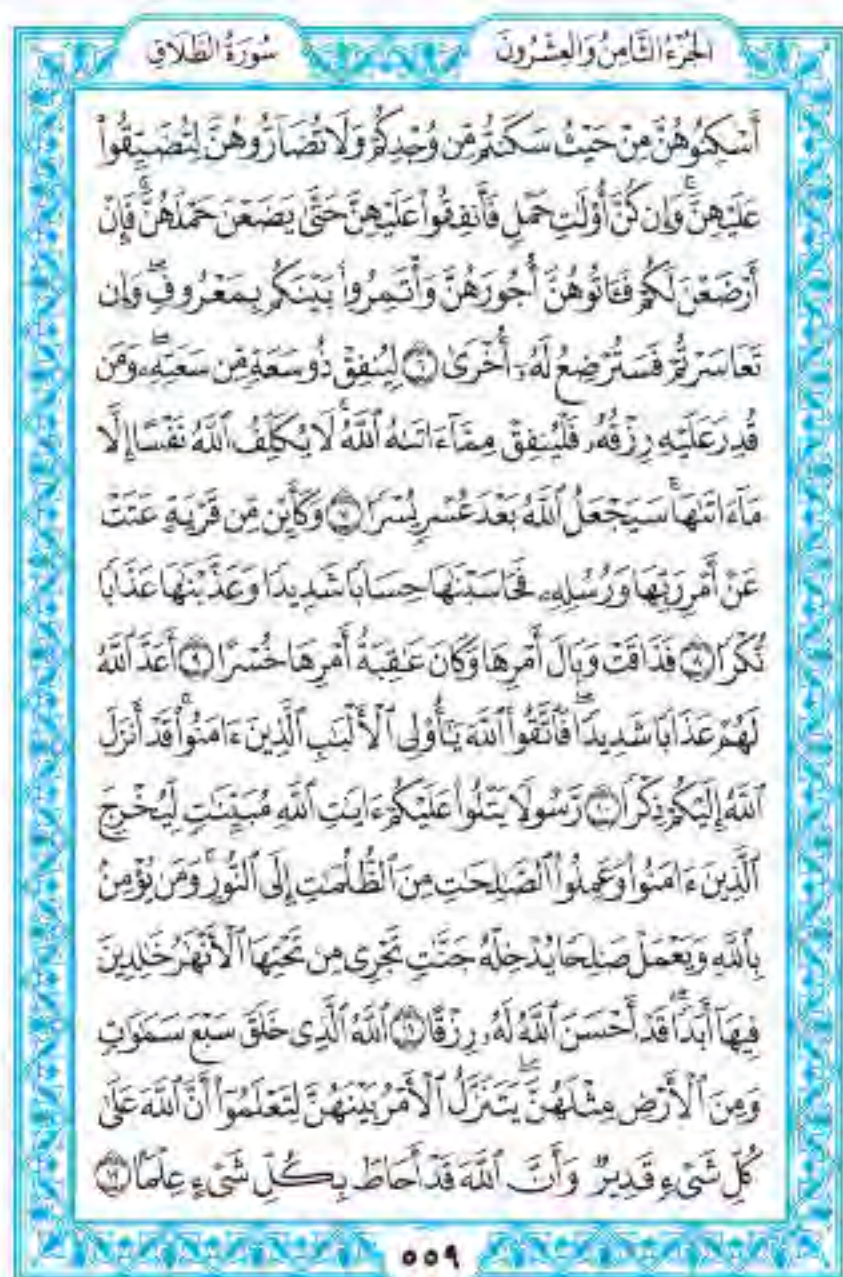 الجزء الثامن والعشرون سورة الطلاق
أَسْكِنُوهُنَّ مِنْ حَيْثُ سَكَنتُم مِّن وُجْدِكُمْ وَلَا تُضَآرُّوهُنَّ لِتُضَيِّقُوا۟
عَلَيْهِنَّ ۚ وَإِن كُنَّ أُو۟لَٰتِ حَمْلٍ فَأَنفِقُوا۟ عَلَيْهِنَّ حَتَّىٰ يَضَعْنَ حَمْلَهُنَّ ۚ فَإِنْ
أَرْضَعْنَ لَكُمْ فَـَٔاتُوهُنَّ أُجُورَهُنَّ وَأْتَمِرُوا۟ بَيْنَكُم بِمَعْرُوفٍ ۖ وَإِن
تَعَاسَرْتُمْ فَسَتُرْضِعُ لَهُۥٓ أُخْرَىٰ ٦ لِيُنفِقْ ذُو سَعَةٍ مِّن سَعَتِهِۦ ۖ وَمَن
قُدِرَ عَلَيْهِ رِزْقُهُۥ فَلْيُنفِقْ مِمَّآ ءَاتَىٰهُ ٱللَّهُ ۚ لَا يُكَلِّفُ ٱللَّهُ نَفْسًا إِلَّا
مَآ ءَاتَىٰهَا ۚ سَيَجْعَلُ ٱللَّهُ بَعْدَ عُسْرٍ يُسْرًا ٧ وَكَأَيِّن مِّن قَرْيَةٍ عَتَتْ
عَنْ أَمْرِ رَبِّهَا وَرُسُلِهِۦ فَحَاسَبْنَٰهَا حِسَابًا شَدِيدًا وَعَذَّبْنَٰهَا عَذَابًا
نُّكْرًا ٨ فَذَاقَتْ وَبَالَ أَمْرِهَا وَكَانَ عَٰقِبَةُ أَمْرِهَا خُسْرًا ٩ أَعَدَّ ٱللَّهُ
لَهُمْ عَذَابًا شَدِيدًا ۖ فَٱتَّقُوا۟ ٱللَّهَ يَٰٓأُو۟لِى ٱلْأَلْبَٰبِ ٱلَّذِينَ ءَامَنُوا۟ ۚ قَدْ أَنزَلَ
ٱللَّهُ إِلَيْكُمْ ذِكْرًا ١٠ رَّسُولًا يَتْلُوا۟ عَلَيْكُمْ ءَايَٰتِ ٱللَّهِ مُبَيِّنَٰتٍ لِّيُخْرِجَ
ٱلَّذِينَ ءَامَنُوا۟ وَعَمِلُوا۟ ٱلصَّٰلِحَٰتِ مِنَ ٱلظُّلُمَٰتِ إِلَى ٱلنُّورِ ۚ وَمَن يُؤْمِنۢ
بِٱللَّهِ وَيَعْمَلْ صَٰلِحًا يُدْخِلْهُ جَنَّٰتٍ تَجْرِى مِن تَحْتِهَا ٱلْأَنْهَٰرُ خَٰلِدِينَ
فِيهَآ أَبَدًا ۖ قَدْ أَحْسَنَ ٱللَّهُ لَهُۥ رِزْقًا ١١ ٱللَّهُ ٱلَّذِى خَلَقَ سَبْعَ سَمَٰوَٰتٍ
وَمِنَ ٱلْأَرْضِ مِثْلَهُنَّ ۖ يَتَنَزَّلُ ٱلْأَمْرُ بَيْنَهُنَّ لِتَعْلَمُوٓا۟ أَنَّ ٱللَّهَ عَلَىٰ
كُلِّ شَىْءٍ قَدِيرٌ وَأَنَّ ٱللَّهَ قَدْ أَحَاطَ بِكُلِّ شَىْءٍ عِلْمًۢا ١٢
٥٥٩